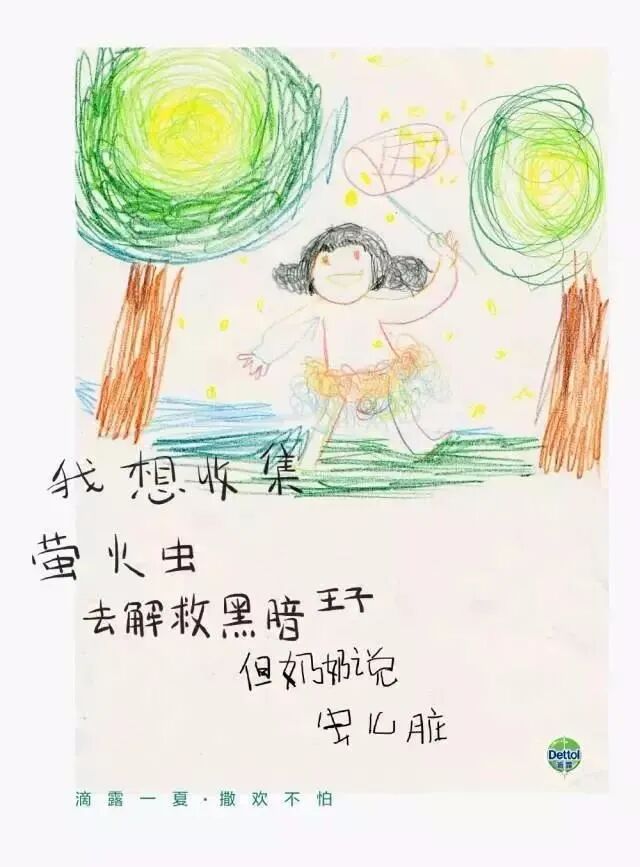 我想收集
萤火虫
去解救黑暗王子
但奶奶说
虫儿脏
Dettol
滴露
滴露一夏·撒欢不怕